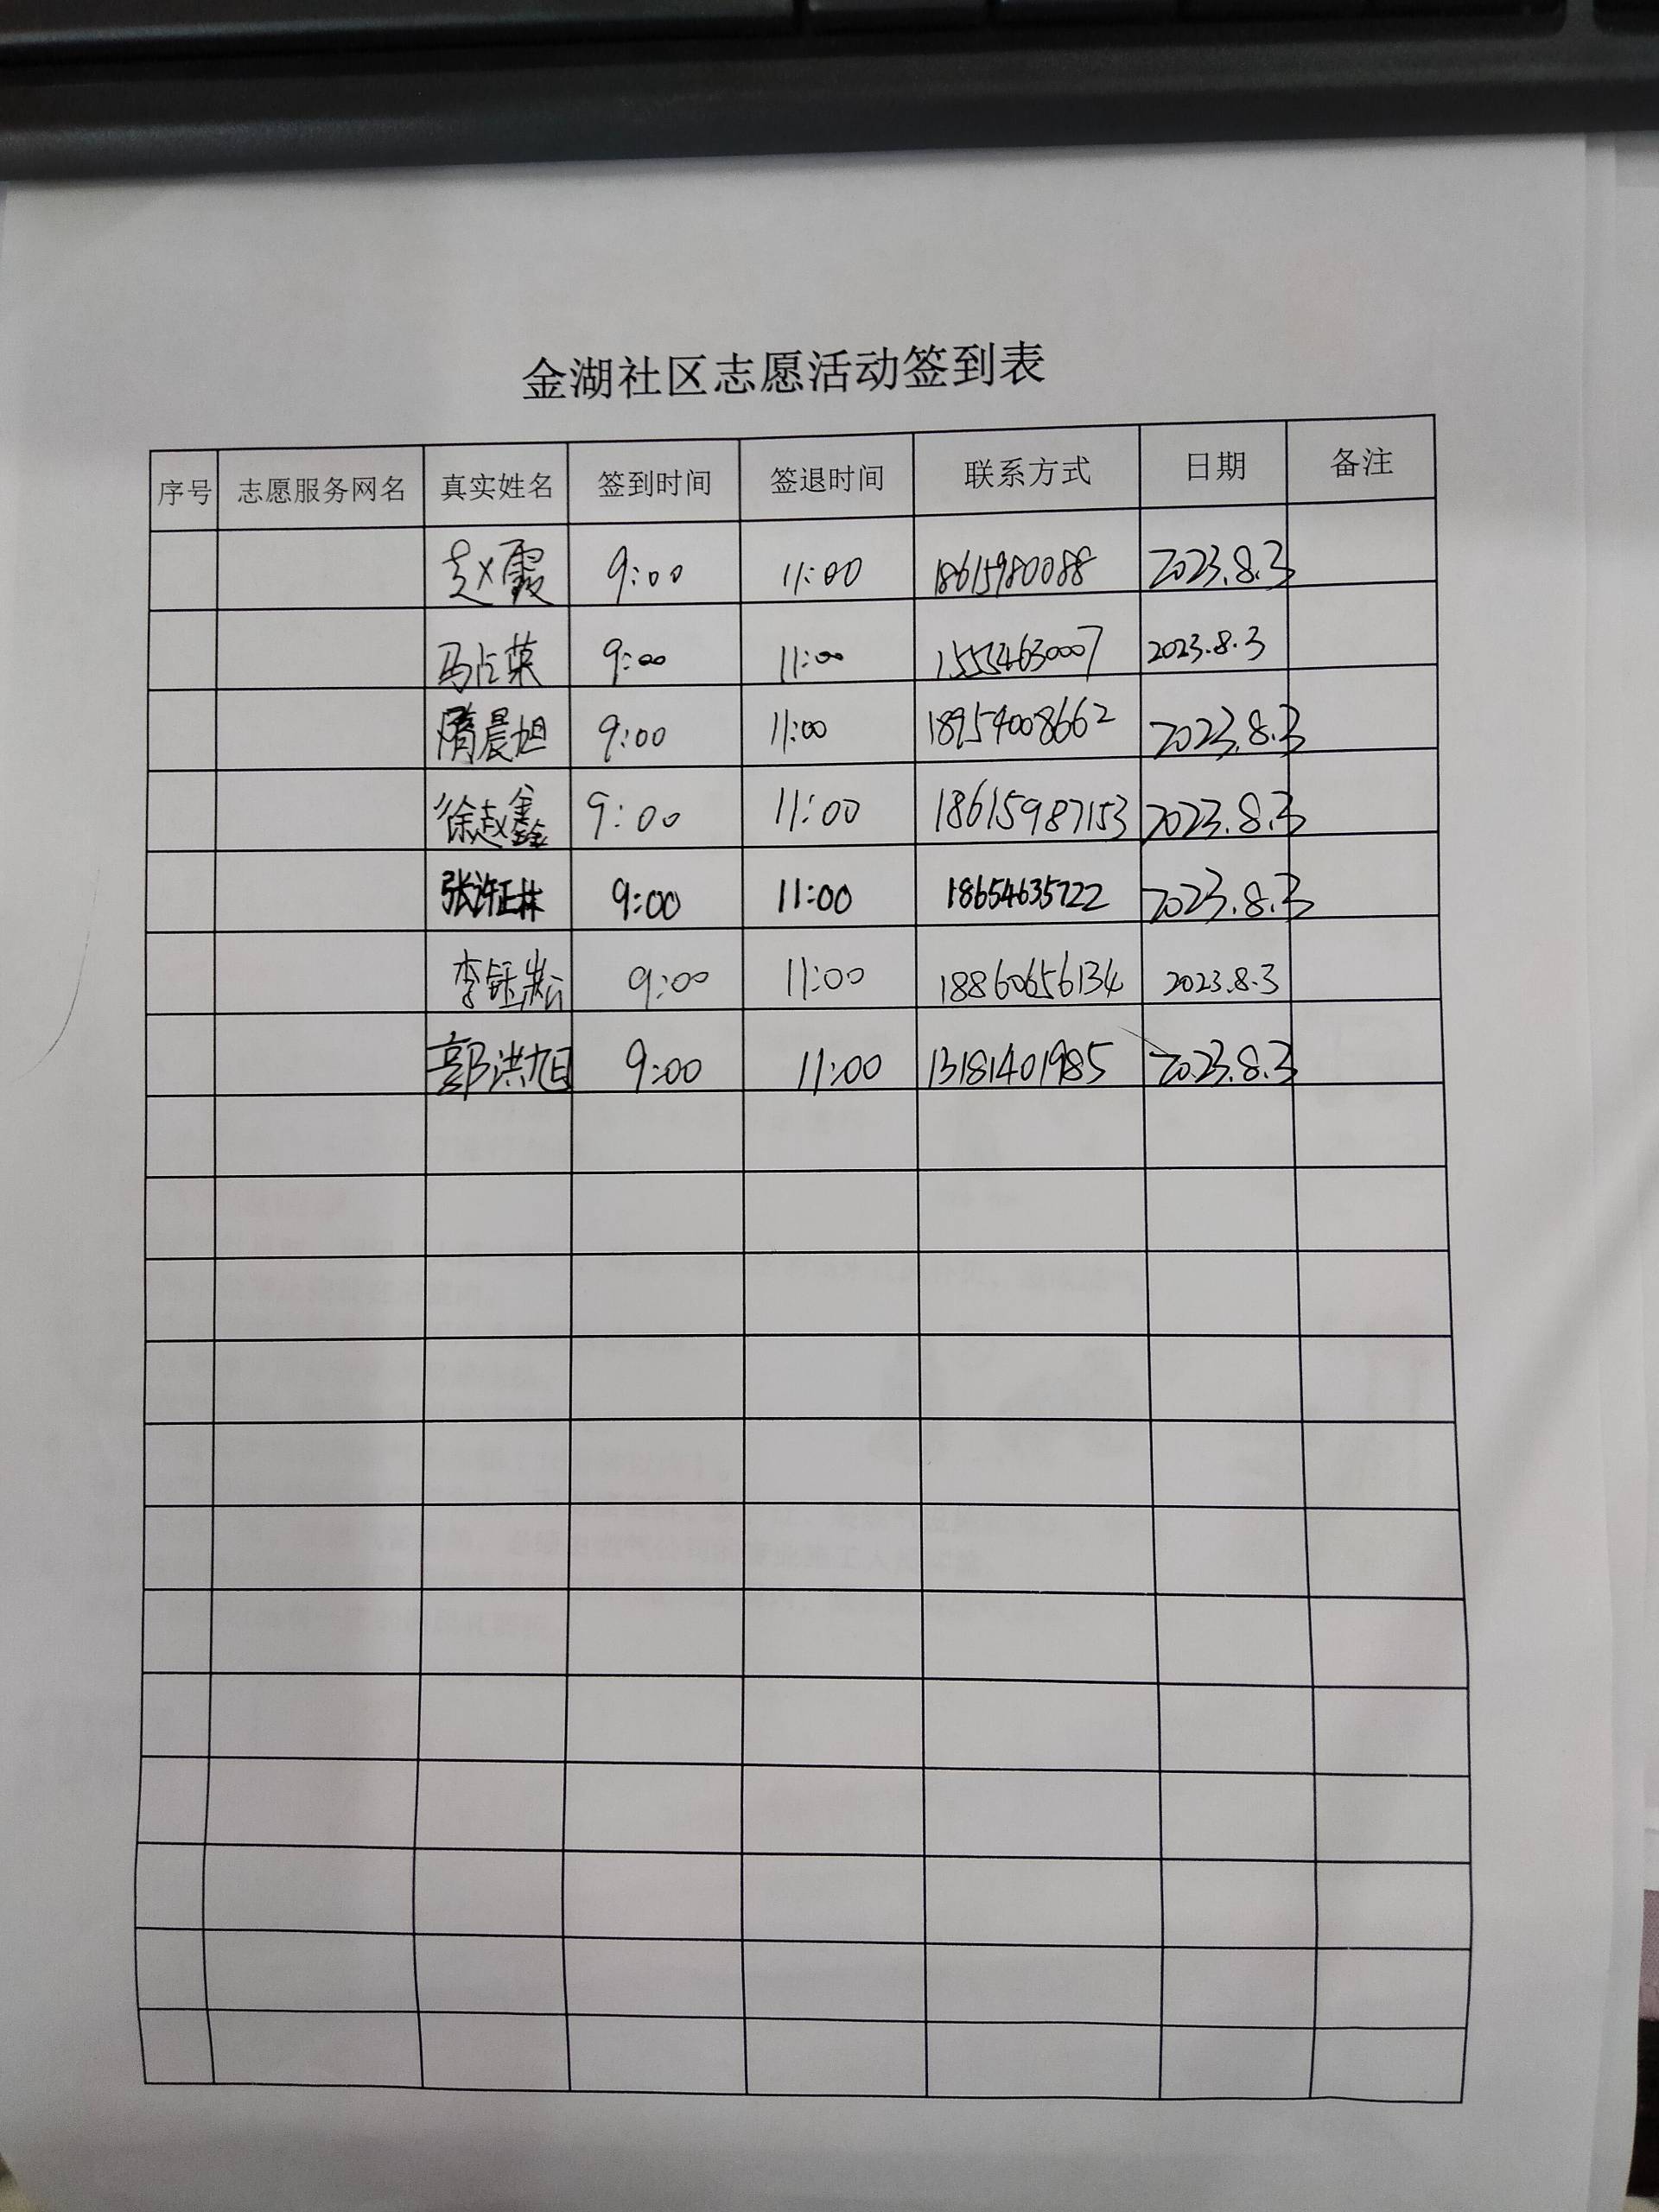 金湖社区志愿活动签到表
序号 志愿服务网名 真实姓名 签到时间 签退时间 联系方式 日期 备注
赵霞 9:00 11:00 18615980088 2023.8.3
马占荣 9:00 11:00 15554630007 2023.8.3
隋晨旭 9:00 11:00 18954008662 2023.8.3
徐赵鑫 9:00 11:00 18615987153 2023.8.3
张许正林 9:00 11:00 18654635722 2023.8.3
李钰淞 9:00 11:00 18860656134 2023.8.3
郭洪旭 9:00 11:00 13181401985 2023.8.3